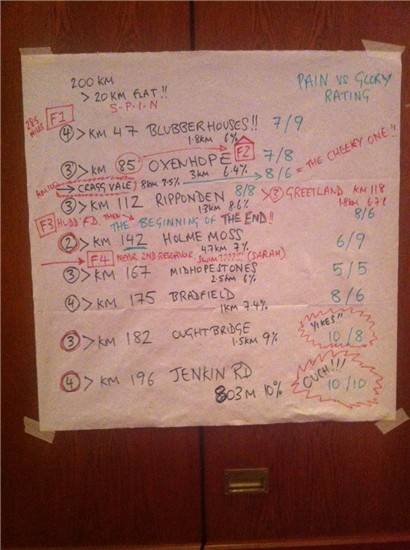 200 KM
> 20 KM FLAT!!
S-P-I-N
PAIN VS GLORY
RATING
F1
④ > KM 47 BLUBBERHOUSES!! 7/9
1.8KM 6%
F2
③ > KM 85 OXENHOPE 7/8
3KM 6.4%
> CRAGG VALE 8KM 2.5% → 8/6 = "THE CHEEKY ONE"
③ > KM 112 RIPPONDEN 8/8 > ③ GREETLAND KM 118
1.3KM 8.6% 1.6KM 6.7%
8/6
F3 HUDD'F'D. THEN →
THE BEGINNING OF THE END!!
② > KM 142 HOLME MOSS 6/9
4.7KM 7%
F4 NEAR 2ND RESERVOIR SWIM????!!! (SARAH)
③ > KM 167 MIDHOPESTONES 5/5
2.5KM 6%
④ > KM 175 BRADFIELD 8/6
1KM 7.4%
YIKES!!
③ > KM 182 OUGHTBRIDGE 10/8
1.5KM 9%
OUCH!!!
④ > KM 196 JENKIN RD 10/10
803M 10%